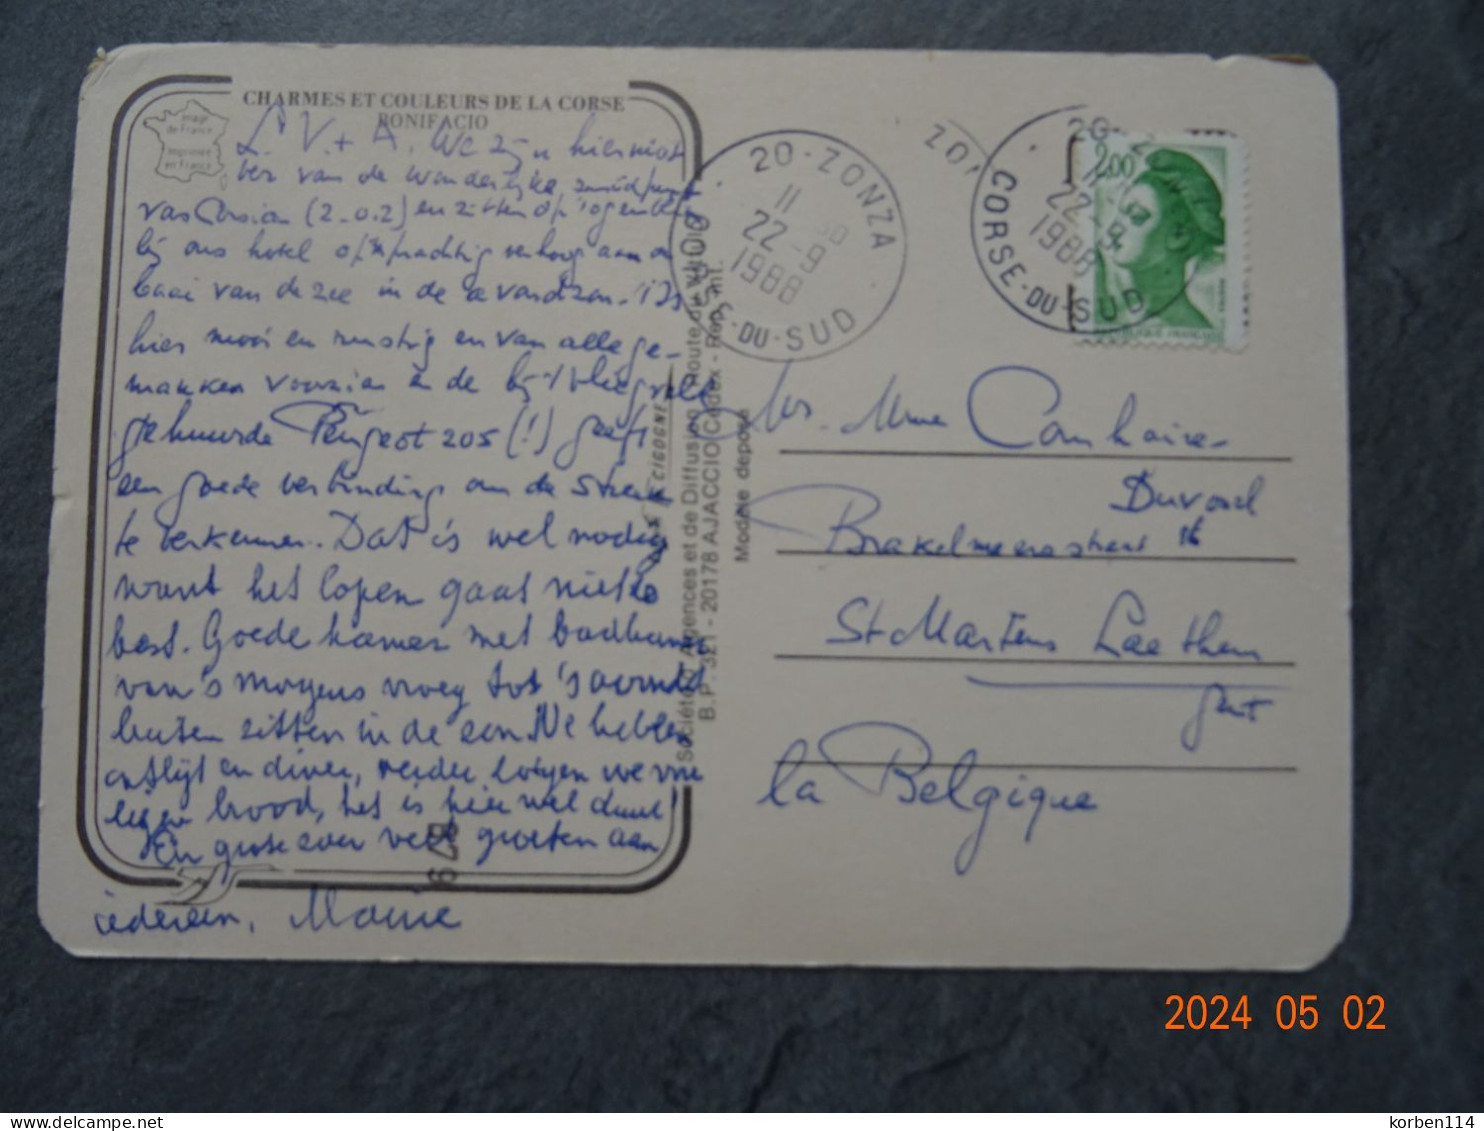 CHARMES ET COULEURS DE LA CORSE
BONIFACIO
Image
de France
Imprimée
en France
L. V. + A. We zijn hier
ver van de wonderlijke, zuidpunt
van Corsica (2.0.2) en zitten op 't ogenblik
bij ons hotel op 'n prachtig verhoog aan een
baai van de zee in de avondzon. 't Is
hier mooi en rustig en van alle ge-
makken voorzien en de bij 't vliegveld
gehuurde Peugeot 205 (!) geeft
een goede verbinding om de streek
te verkennen. Dat is wel nodig
want het lopen gaat niet zo
best. Goede kamer met badkamer
van 's morgens vroeg tot 's avonds
buiten zitten in de zon. We hebben
ontbijt en diner, verder zorgen we voor
eigen brood, het is hier wel duur!
En groet voor veel groeten aan
iedereen, Marie
679
CIGOGNE
Société d'Agences et de Diffusion - Route du
B.P. 321 - 20178 AJACCIO Cedex - Rep. int.
Modèle déposé
20-ZONZA
11
22-9
1988
CORSE-DU-SUD
ZON
20-Z
22-9
1988
CORSE-DU-SUD
2.00
REPUBLIQUE FRANÇAISE
Mr. Mme Comhaire-
Duvosel
Brakelmeersstraat 16
St Martens Laethem
Gent
la Belgique
2024 05 02
korben114